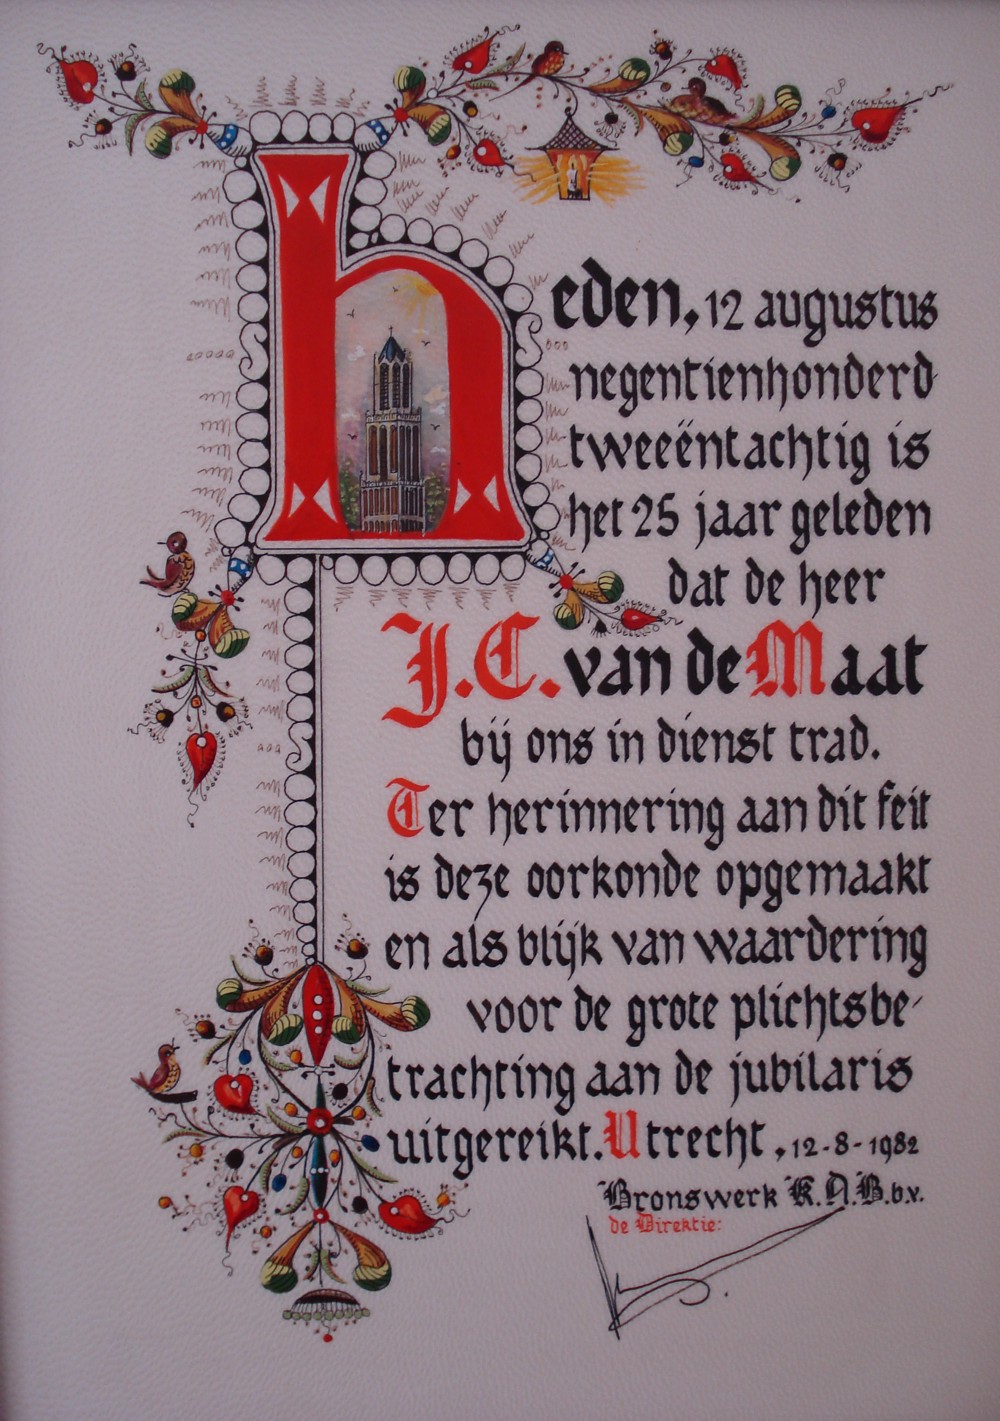 heden, 12 augustus
negentienhonderd
tweeëntachtig is
het 25 jaar geleden
dat de heer
J.C. van de Maat
bij ons in dienst trad.
Ter herinnering aan dit feit
is deze oorkonde opgemaakt
en als blijk van waardering
voor de grote plichtsbe-
trachting aan de jubilaris
uitgereikt. Utrecht, 12-8-1982
Bronswerk K.A.B. b.v.
de Direktie: